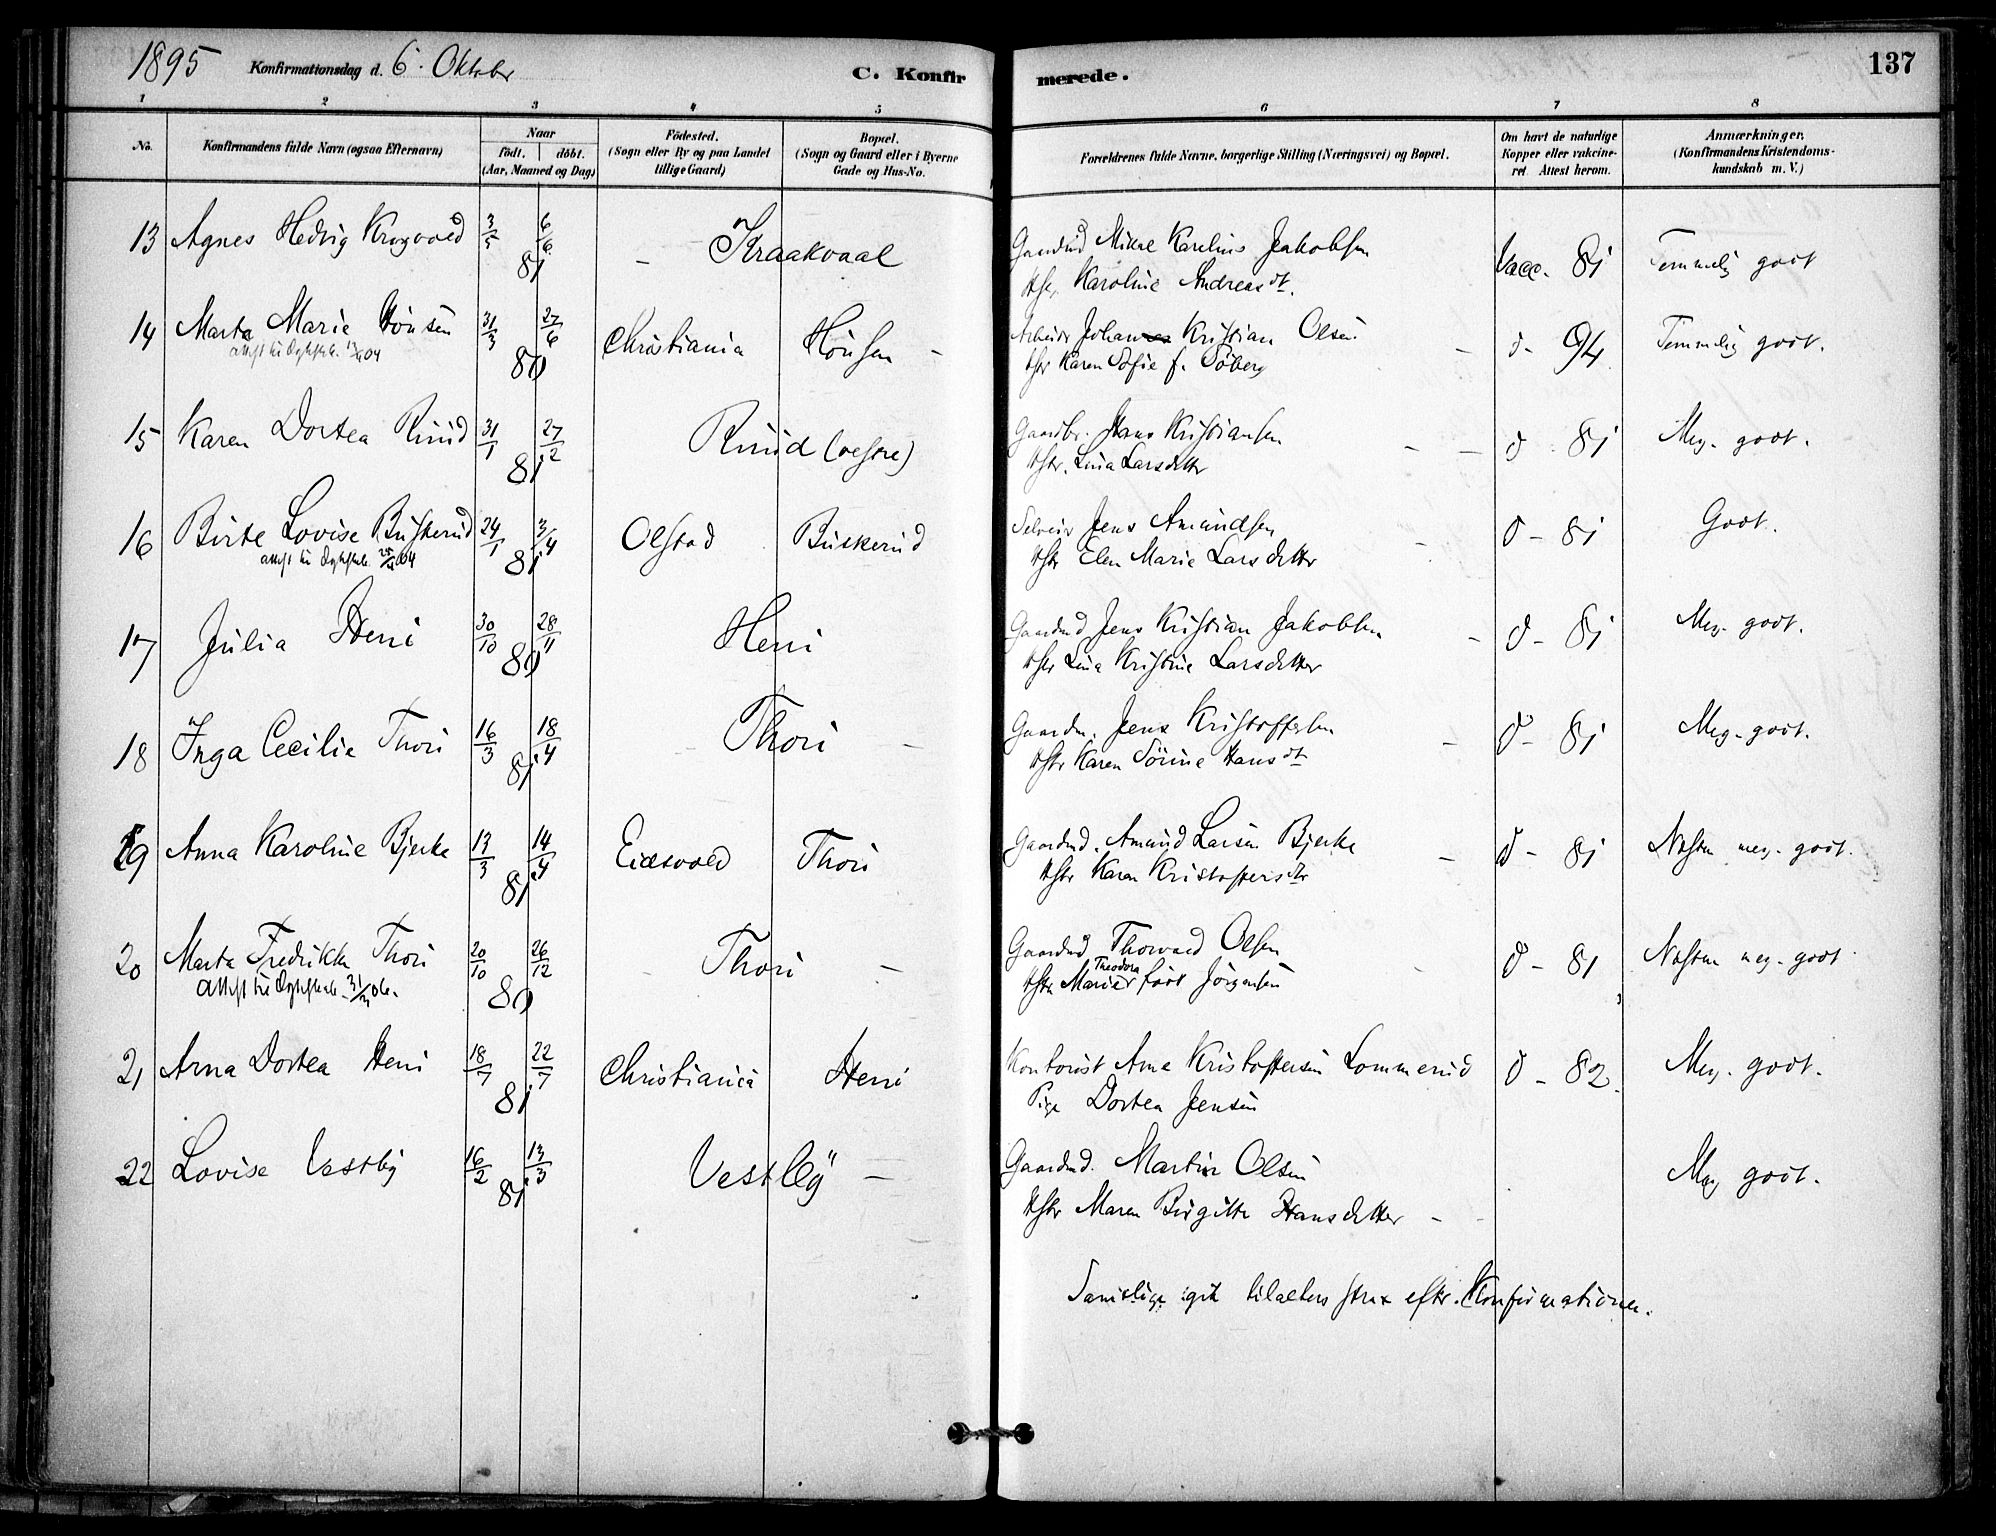 1895 Konfirmationsdag d. 6. Oktober C. Konfirmerede. 137
1 2 3 4 5 6 7 8
No. Konfirmandens fulde Navn (ogsaa Efternavn) Naar født. døbt. (Aar, Maaned og Dag) Födested. (Sogn eller By og paa Landet tillige Gaard) Bopæl. (Sogn og Gaard eller i Byerne Gade og Hus-No. Forældrenes fulde Navne, borgerlige Stilling (Næringsvei) og Bopæl. Om havt de naturlige Kopper eller vakcineret Attest herom. Anmærkninger. (Konfirmandens Kristendomskundskab m. V.)
13 Agnes Hedvig 3/5 6/6 81 – Kraakvaal Gaardmd Karelius Jakobsen Vacc. 81 Temmelig godt
Hstr. Karoline Andreasdt.
14 Marta Marie Hönsen 31/3 27/6 80 Christiania Hönsen – Arbeider Johan Kristian Olsen – d – 94 Temmelig godt.
Hstr Karen Sofie f. Söberg
15 Karen Dortea Ruud 31/1 27/2 81 Ruud (vestre) Gaardbr. Hans Kristiansen – – d 81 Meg. godt.
Hstr. Lina Larsdatter
16 Birte Lovise Buskerud 24/1 3/4 81 Olstad Buskerud Selveier Jens Amundsen – d – 81 Godt.
Hstr Elen Marie Larsdatter
17 Julia Heni 30/10 28/11 80 Heni Gaardmd Jens Kristian Jakobsen – d – 81 Meg. godt.
Hstr Lina Kristine Larsdatter
18 Inga Cecilie Thori 16/3 18/4 81 – Thori – Gaardm. Jens Kristoffersen – d – 81 Meg. godt.
Hstr Karen Sörine Hansdt
19 Anna Karoline Bjerke 13/3 14/4 81 Eidsvold Thori Gaardmd. Amund Larsen Bjerke – d – 81 Næsten meg. godt.
Hstr Karen Kristoffersdtr
20 Marta Fredrikke Thori 20/10 26/12 80 – Thori – Gaardmd Thorvald Olsen d – 81 Næsten meg. godt
Hstr Marie Theodora födt Jörgensen
21 Arna Dortea Heni 18/7 22/7 81 Christiania Heni Kontorist Arne Kristoffersen Lommerud d – 82. Meg. godt.
Pige Dortea Jensen
22 Lovise Vestby 16/2 13/3 81 Vestby – Gaardmd. Martin Olsen Meg godt.
Hstr Maren Birgitte Hansdatter –
Samtlige gik tilalters strax efter Konfirmationen.